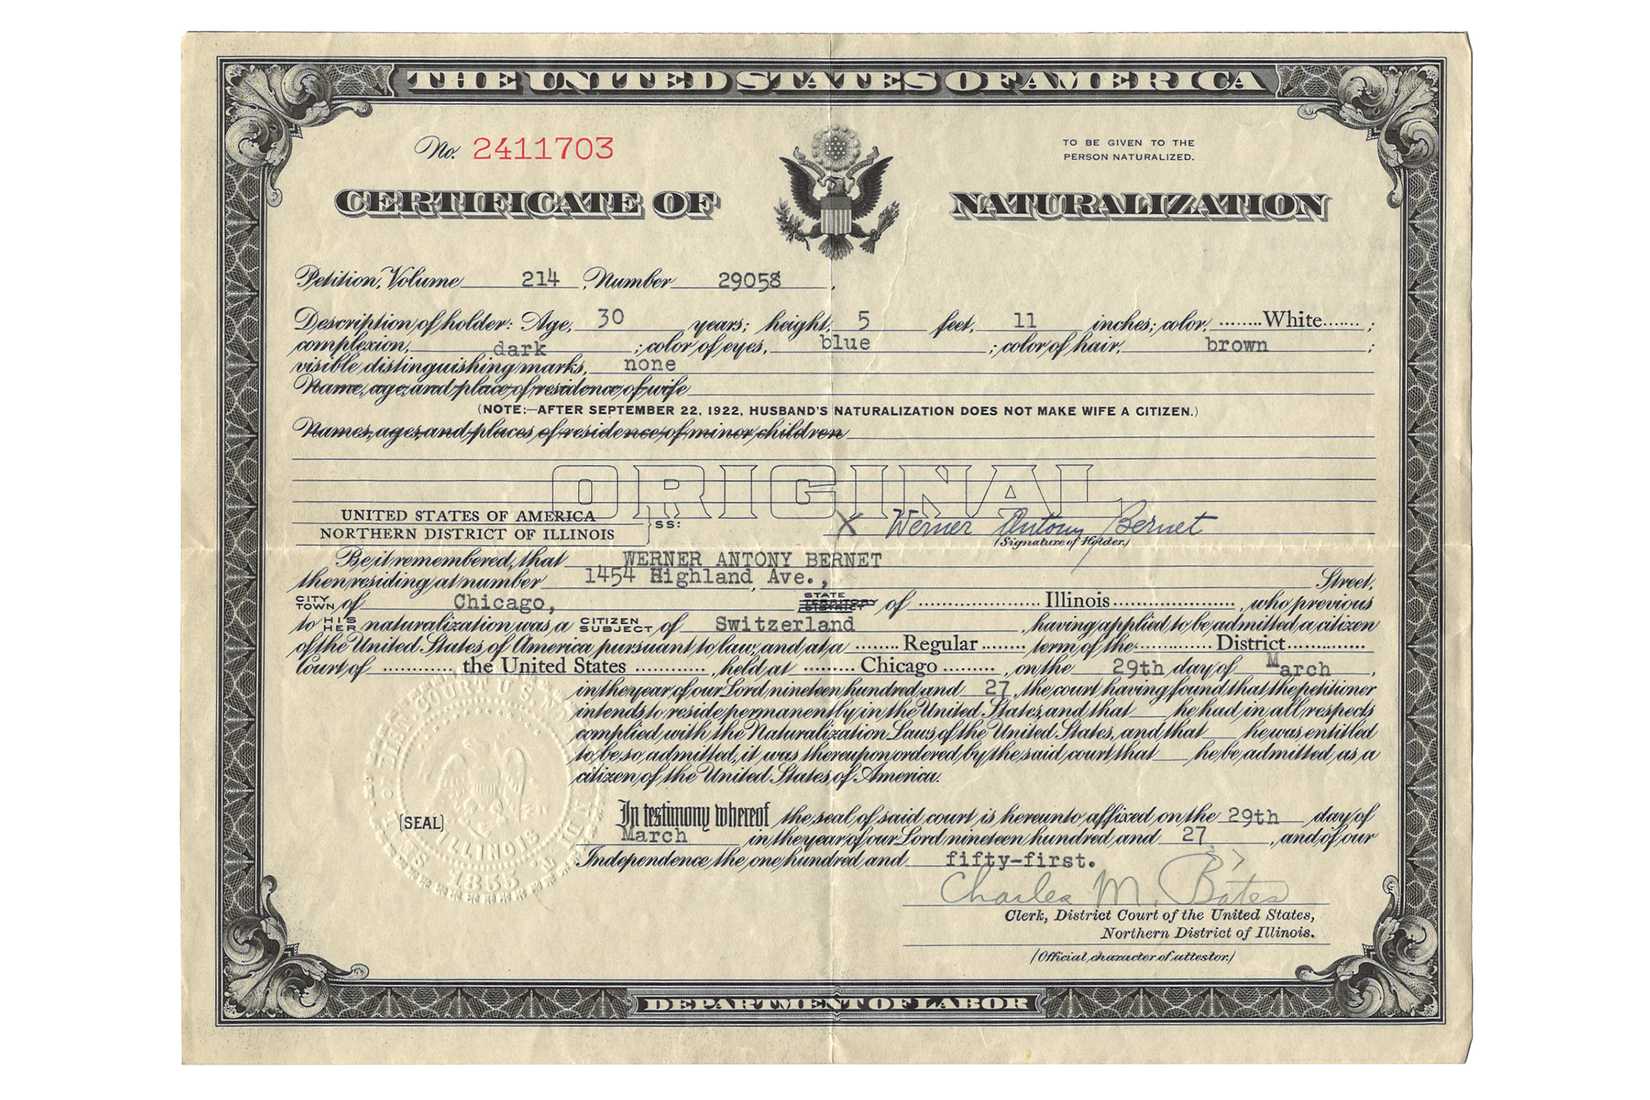 THE UNITED STATES OF AMERICA
No. 2411703
TO BE GIVEN TO THE
PERSON NATURALIZED.
CERTIFICATE OF NATURALIZATION
Petition, Volume 214, Number 29058,
Description of holder: Age, 30 years; height, 5 feet, 11 inches; color, ........White.......;
complexion, dark; color of eyes, blue; color of hair, brown;
visible distinguishing marks, none
Name, age, and place of residence of wife
(NOTE:—AFTER SEPTEMBER 22, 1922, HUSBAND'S NATURALIZATION DOES NOT MAKE WIFE A CITIZEN.)
Names, ages, and places of residence of minor children
ORIGINAL
UNITED STATES OF AMERICA
NORTHERN DISTRICT OF ILLINOIS
SS:
X Werner Antony Bernet
(Signature of Holder.)
Be it remembered, that WERNER ANTONY BERNET
then residing at number 1454 Highland Ave., Street,
CITY TOWN of Chicago, STATE of Illinois, who previous
to HIS HER naturalization was a CITIZEN SUBJECT of Switzerland, having applied to be admitted a citizen
of the United States of America pursuant to law, and at a Regular term of the District
Court of the United States, held at Chicago, on the 29th day of March,
in the year of our Lord nineteen hundred and 27, the court having found that the petitioner
intends to reside permanently in the United States, and that he had in all respects
complied with the Naturalization Laws of the United States, and that he was entitled
to be so admitted, it was thereupon ordered by the said court that he be admitted as a
citizen of the United States of America.
In testimony whereof the seal of said court is hereunto affixed on the 29th day of
March in the year of our Lord nineteen hundred and 27, and of our
Independence the one hundred and fifty-first.
[SEAL]
ILLINOIS
1855
Charles M. Bates
Clerk, District Court of the United States,
Northern District of Illinois.
(Official character of attestor.)
DEPARTMENT OF LABOR